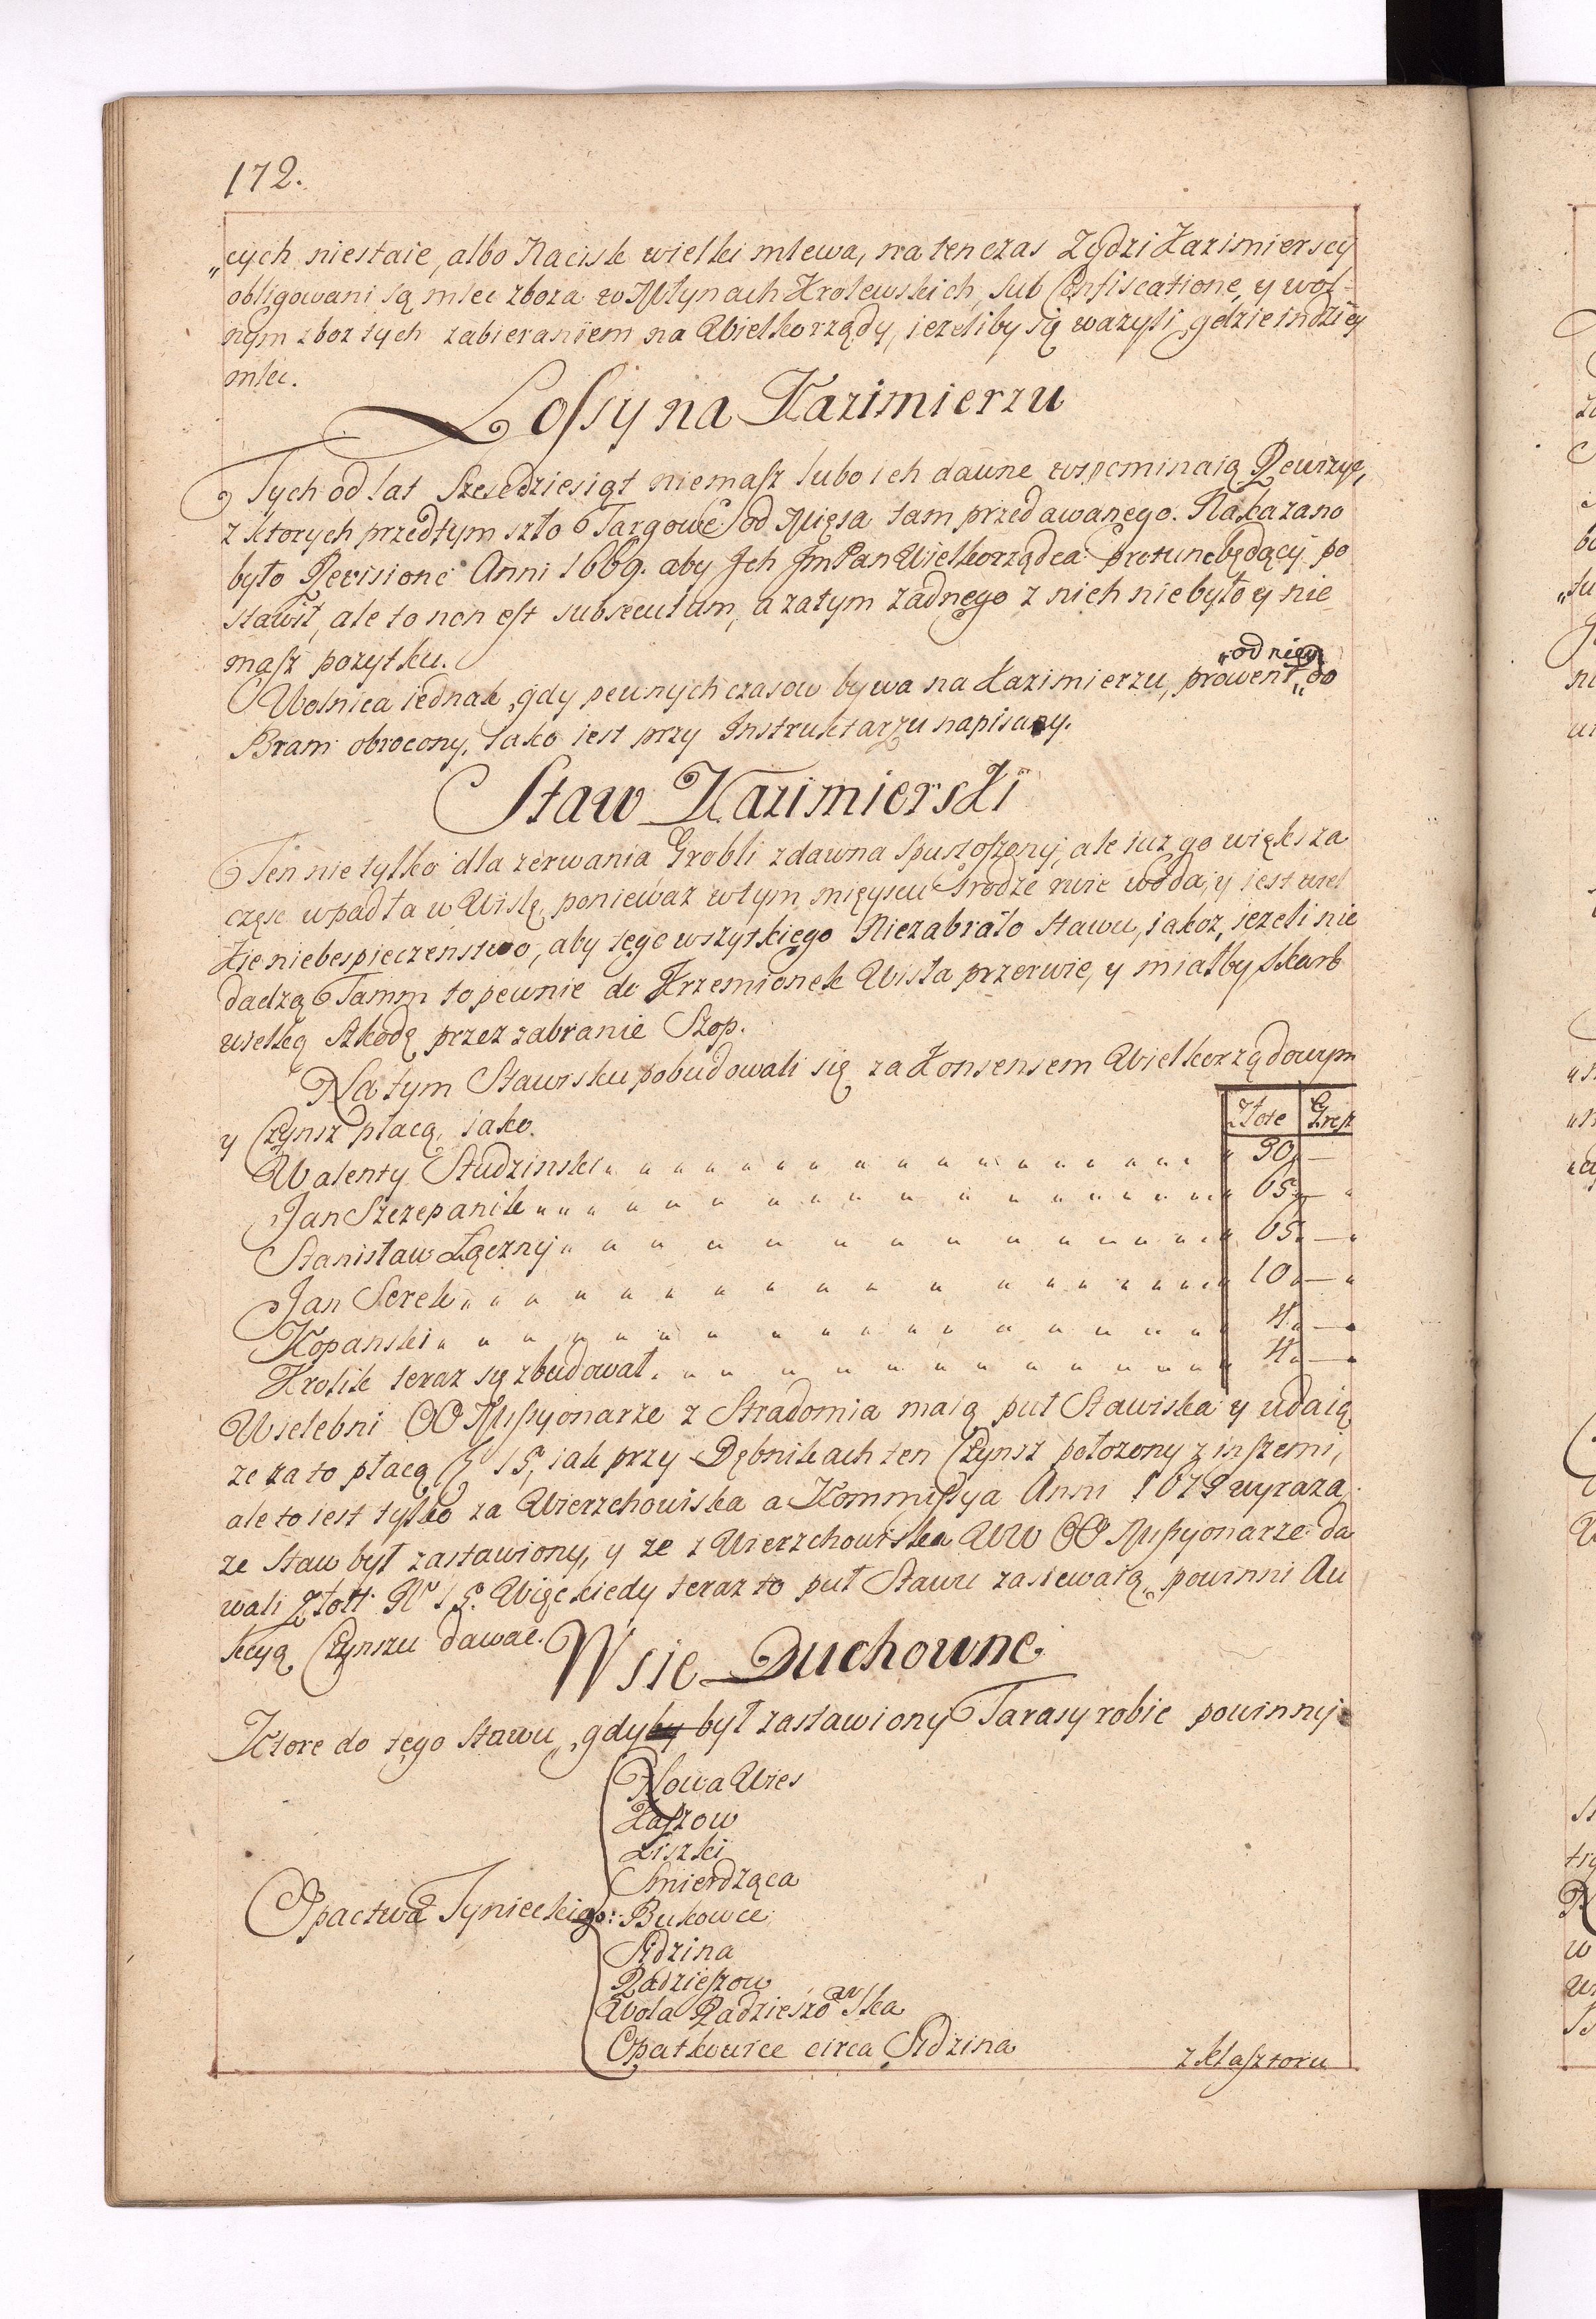 172.
„cych niestaie, albo Nacisk wielki mlewa, na ten czas Zydzi Kazimierscy
obligowani są mlec zboza w Młynach Krolewskich, sub Confiscatione, y wol-
nym zboz tych zabieraniem na Wielkorządy, iezeliby się wazyli gdzieindziey
mlec.
Lossy na Kazimierzu
Tych od lat szescdziesiąt niemasz lubo ich dawne wspominaią Rewizye,
z ktorych przedtym szło Targowe od Mięsa tam przedawanego. Nakazano
było Revisione Anni 1669. aby Jch Jm Pan Wielkorządca protunc będący po
stawił, ale to non est subsecutum, a zatym zadnego z nich nie było y nie
masz pozytku.
Wolnica iednak, gdy pewnych czasow bywa na Kazimierzu, prowent „od niey „do
Bram obrocony, iako iest przy Instruktarzu napisany.
Staw Kazimierski
Ten nie tylko dla zerwania Grobli zdawna spustoszony, ale iuz go większa
częsc wpadła w Wisłę, poniewaz w tym mieyscu srodze rwie woda, y iest wiel
kie niebespieczenstwo, aby tego wszystkiego Niezabrało stawu, iakoz, iezeli nie
dadzą Tamm to pewnie do Krzemionek Wisła przerwie, y miałby skarb
wielką szkodę przez zabranie Szop.
Na tym Stawisku pobudowali się za Konsensem Wielkorządowym
y Czynsz płacą, iako.
Złote Grosz
Walenty Studzinski 30 —
Jan Szczepanik 65 —
Stanisław Łączny 65 —
Jan Serek 10 —
Kopanski 4 —
Krolik teraz się zbudował 4 —
Wielebni OO Missyonarze z Stradomia maią puł Stawiska y udaią
ze za to płacą 15, iak przy Dębnikach ten Czynsz połozony z inszemi,
ale to iest tylko za Wierzchowiska a Kommissya Anni 1679 wyraza
ze Staw był zastawiony, y ze z Wierzchowiska WW OO Missyonarze da
wali Złott: Nr 15. Więc kiedy teraz to puł Stawu zasiewaią, powinni Au
kcyą Czynszu dawac.
Wsie Duchowne
Ktore do tego stawu, gdyby był zastawiony Tarasy robic powinny
Opactwa Tynieckiego:
Nowa Wies
Kaszow
Liszki
Smierdząca
Bukowce
Sidzina
Radzieszow
Wola Radzieszowska
Opatkowice circa Sidzina
z klasztoru